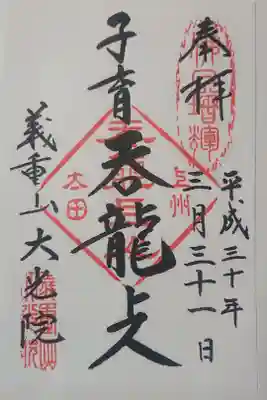 奉拝
平成三十年
三月三十一日
子育呑龍上人
上州
太田
義重山大光院